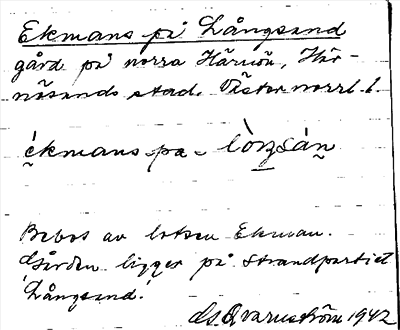 Ekmans på Långsand
gård på norra Härnön, Här-
nösands stad. Västernorrl. l.
ékmans pa lòŋsán
Bebos av lotsen Ekman.
Gården ligger på strandpartiet
'Långsand'.
Qvarnström 1942